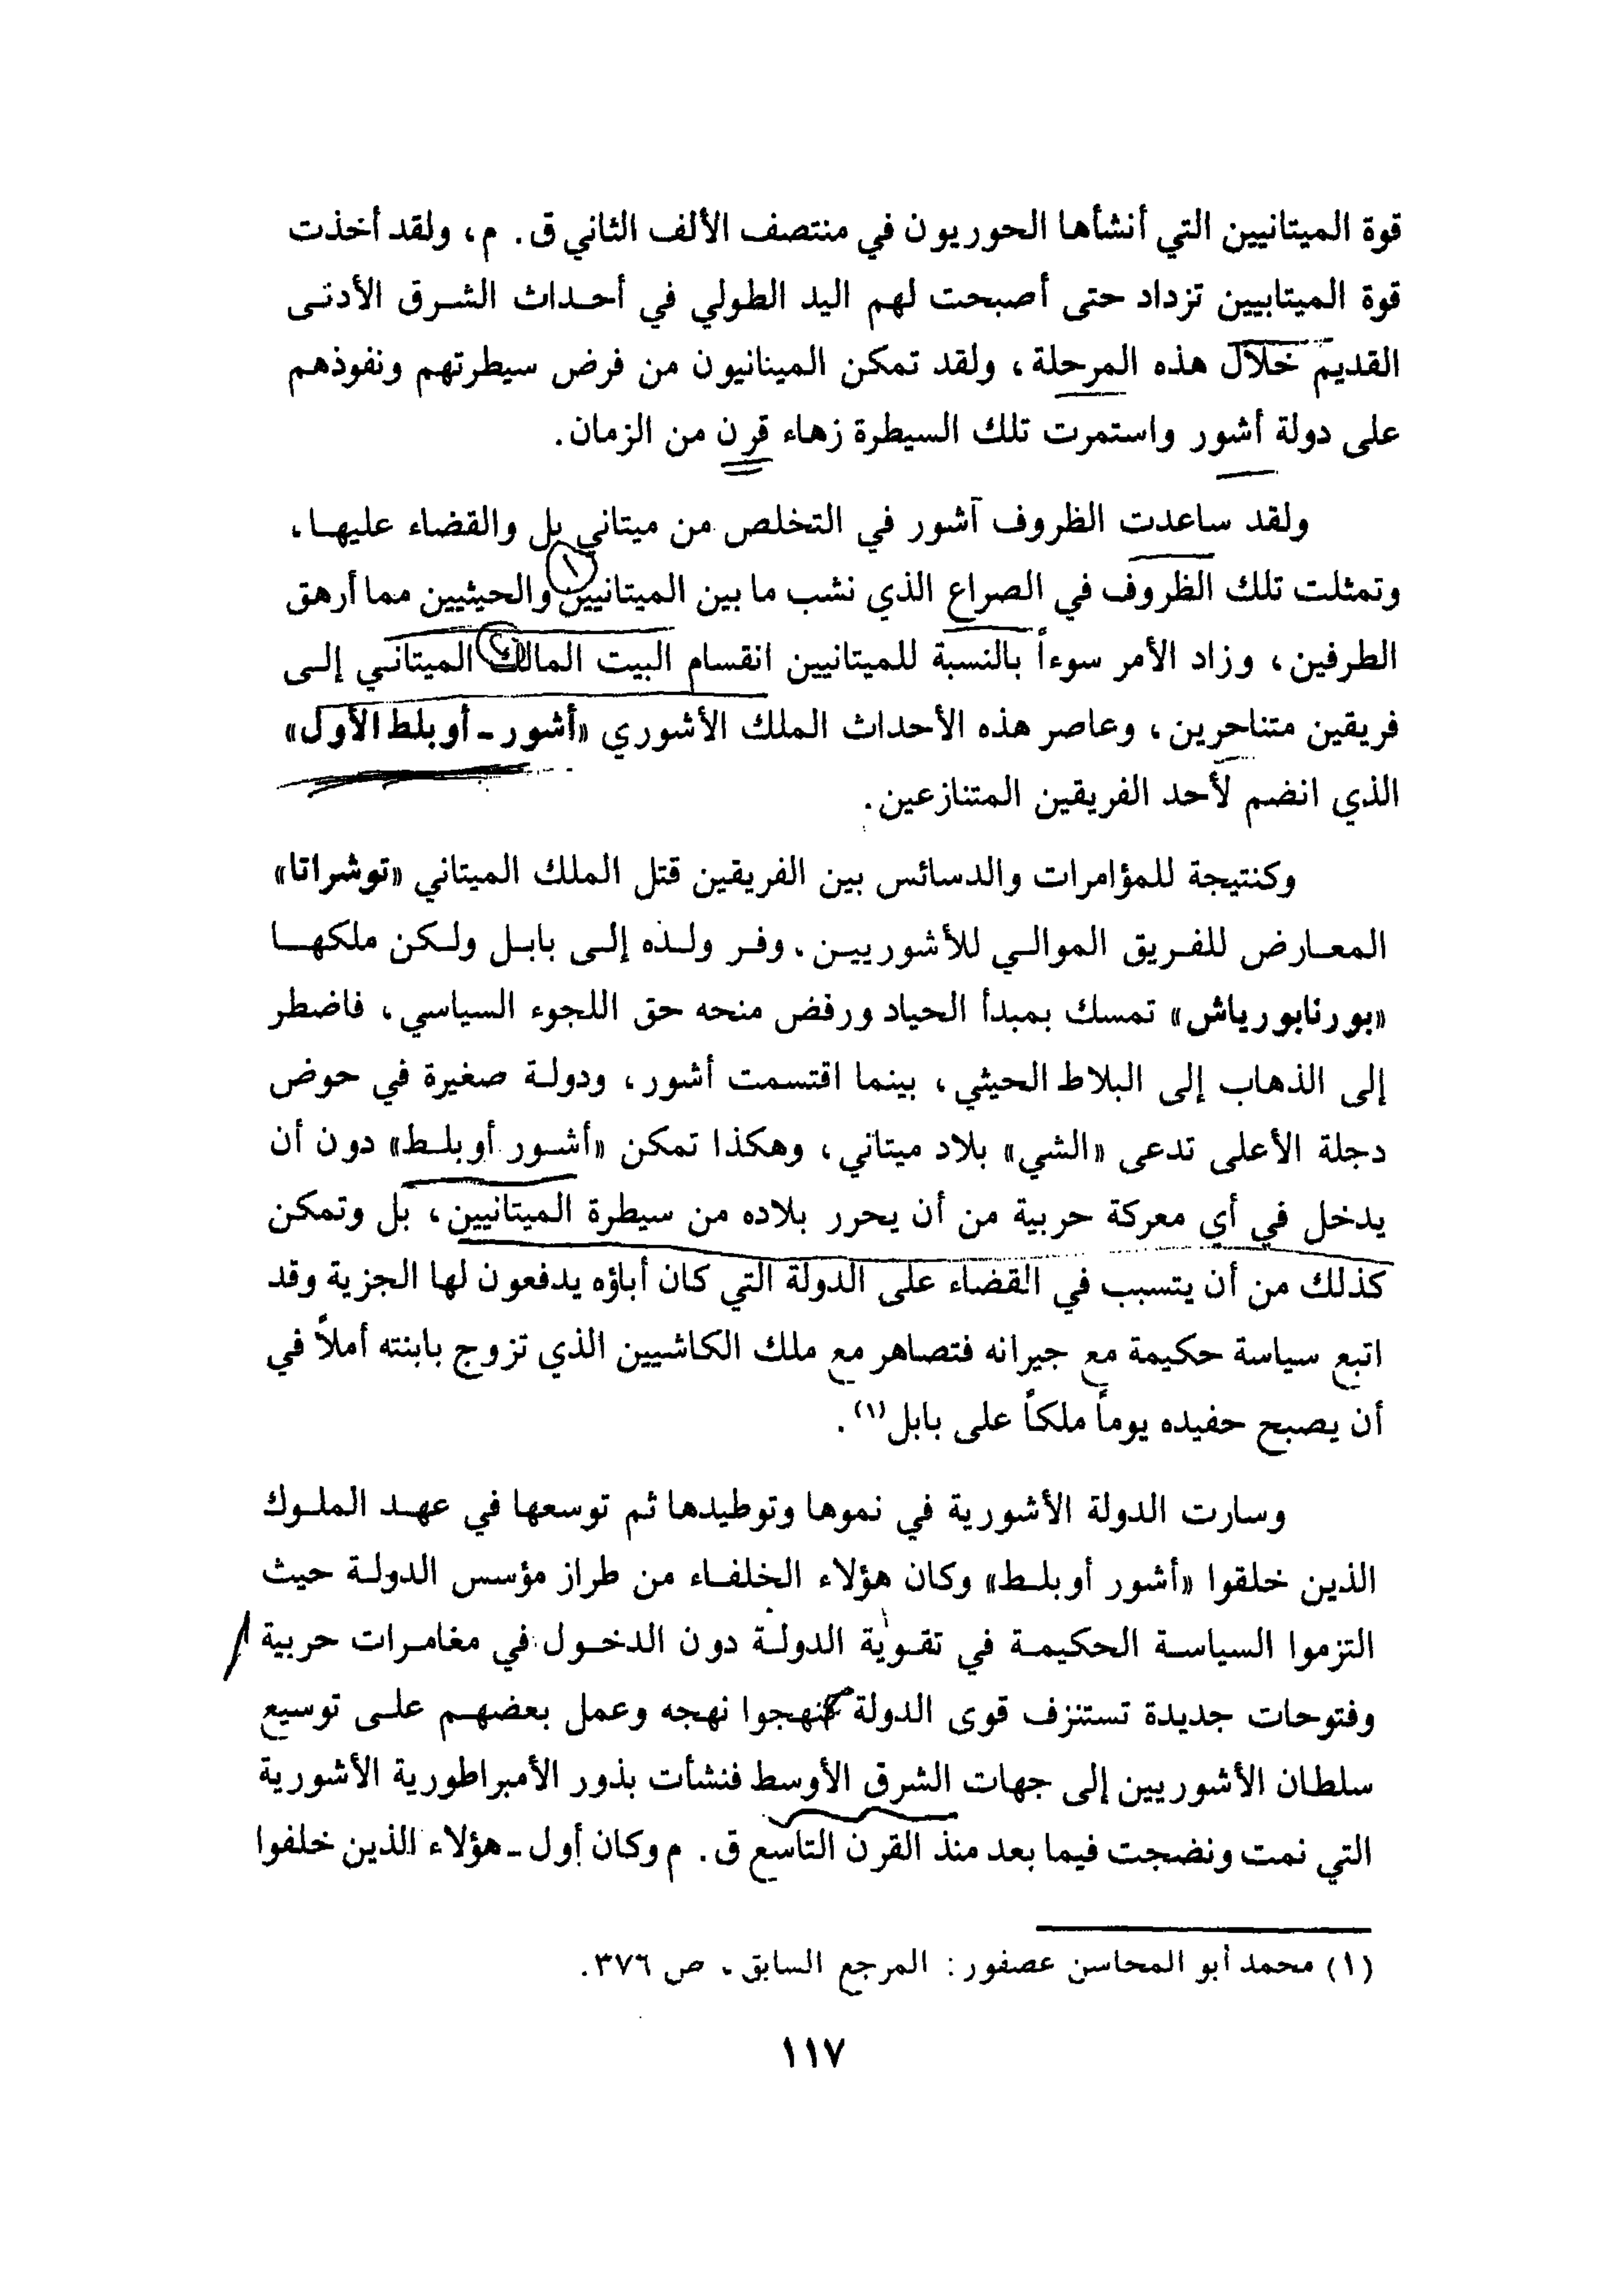 قوة الميتانيين التي أنشأها الحوريون في منتصف الألف الثاني ق. م، ولقد أخذت
قوة الميتابيين تزداد حتى أصبحت لهم اليد الطولي في أحداث الشرق الأدنى
القديم خلال هذه المرحلة، ولقد تمكن المينانيون من فرض سيطرتهم ونفوذهم
على دولة أشور واستمرت تلك السيطرة زهاء قرن من الزمان.
ولقد ساعدت الظروف آشور في التخلص من ميتاني بل والقضاء عليها،
١
وتمثلت تلك الظروف في الصراع الذي نشب ما بين الميتانيين والحيثيين مما أرهق
الطرفين، وزاد الأمر سوءاً بالنسبة للميتانيين انقسام البيت المالك الميتاني إلى
فريقين متناحرين، وعاصر هذه الأحداث الملك الأشوري «أشور ـ أوبلط الأول»
الذي انضم لأحد الفريقين المتنازعين.
وكنتيجة للمؤامرات والدسائس بين الفريقين قتل الملك الميتاني «توشراتا»
المعارض للفريق الموالي للأشوريين، وفر ولذه إلى بابل ولكن ملكها
«بورنابورياش» تمسك بمبدأ الحياد ورفض منحه حق اللجوء السياسي، فاضطر
إلى الذهاب إلى البلاط الحيثي، بينما اقتسمت أشور، ودولة صغيرة في حوض
دجلة الأعلى تدعى «الشي» بلاد ميتاني، وهكذا تمكن «أشور أوبلط» دون أن
يدخل في أي معركة حربية من أن يحرر بلاده من سيطرة الميتانيين، بل وتمكن
كذلك من أن يتسبب في القضاء على الدولة التي كان أباؤه يدفعون لها الجزية وقد
اتبع سياسة حكيمة مع جيرانه فتصاهر مع ملك الكاشيين الذي تزوج بابنته أملاً في
أن يصبح حفيده يوماً ملكاً على بابل(١).
وسارت الدولة الأشورية في نموها وتوطيدها ثم توسعها في عهد الملوك
الذين خلقوا «أشور أوبلط» وكان هؤلاء الخلفاء من طراز مؤسس الدولة حيث
التزموا السياسة الحكيمة في تقوية الدولة دون الدخول في مغامرات حربية
وفتوحات جديدة تستنزف قوى الدولة فنهجوا نهجه وعمل بعضهم على توسيع
سلطان الأشوريين إلى جهات الشرق الأوسط فنشأت بذور الأمبراطورية الأشورية
التي نمت ونضجت فيما بعد منذ القرن التاسع ق. م وكان أول ـ هؤلاء الذين خلفوا
(١) محمد أبو المحاسن عصفور: المرجع السابق، ص ٣٧٦.
١١٧